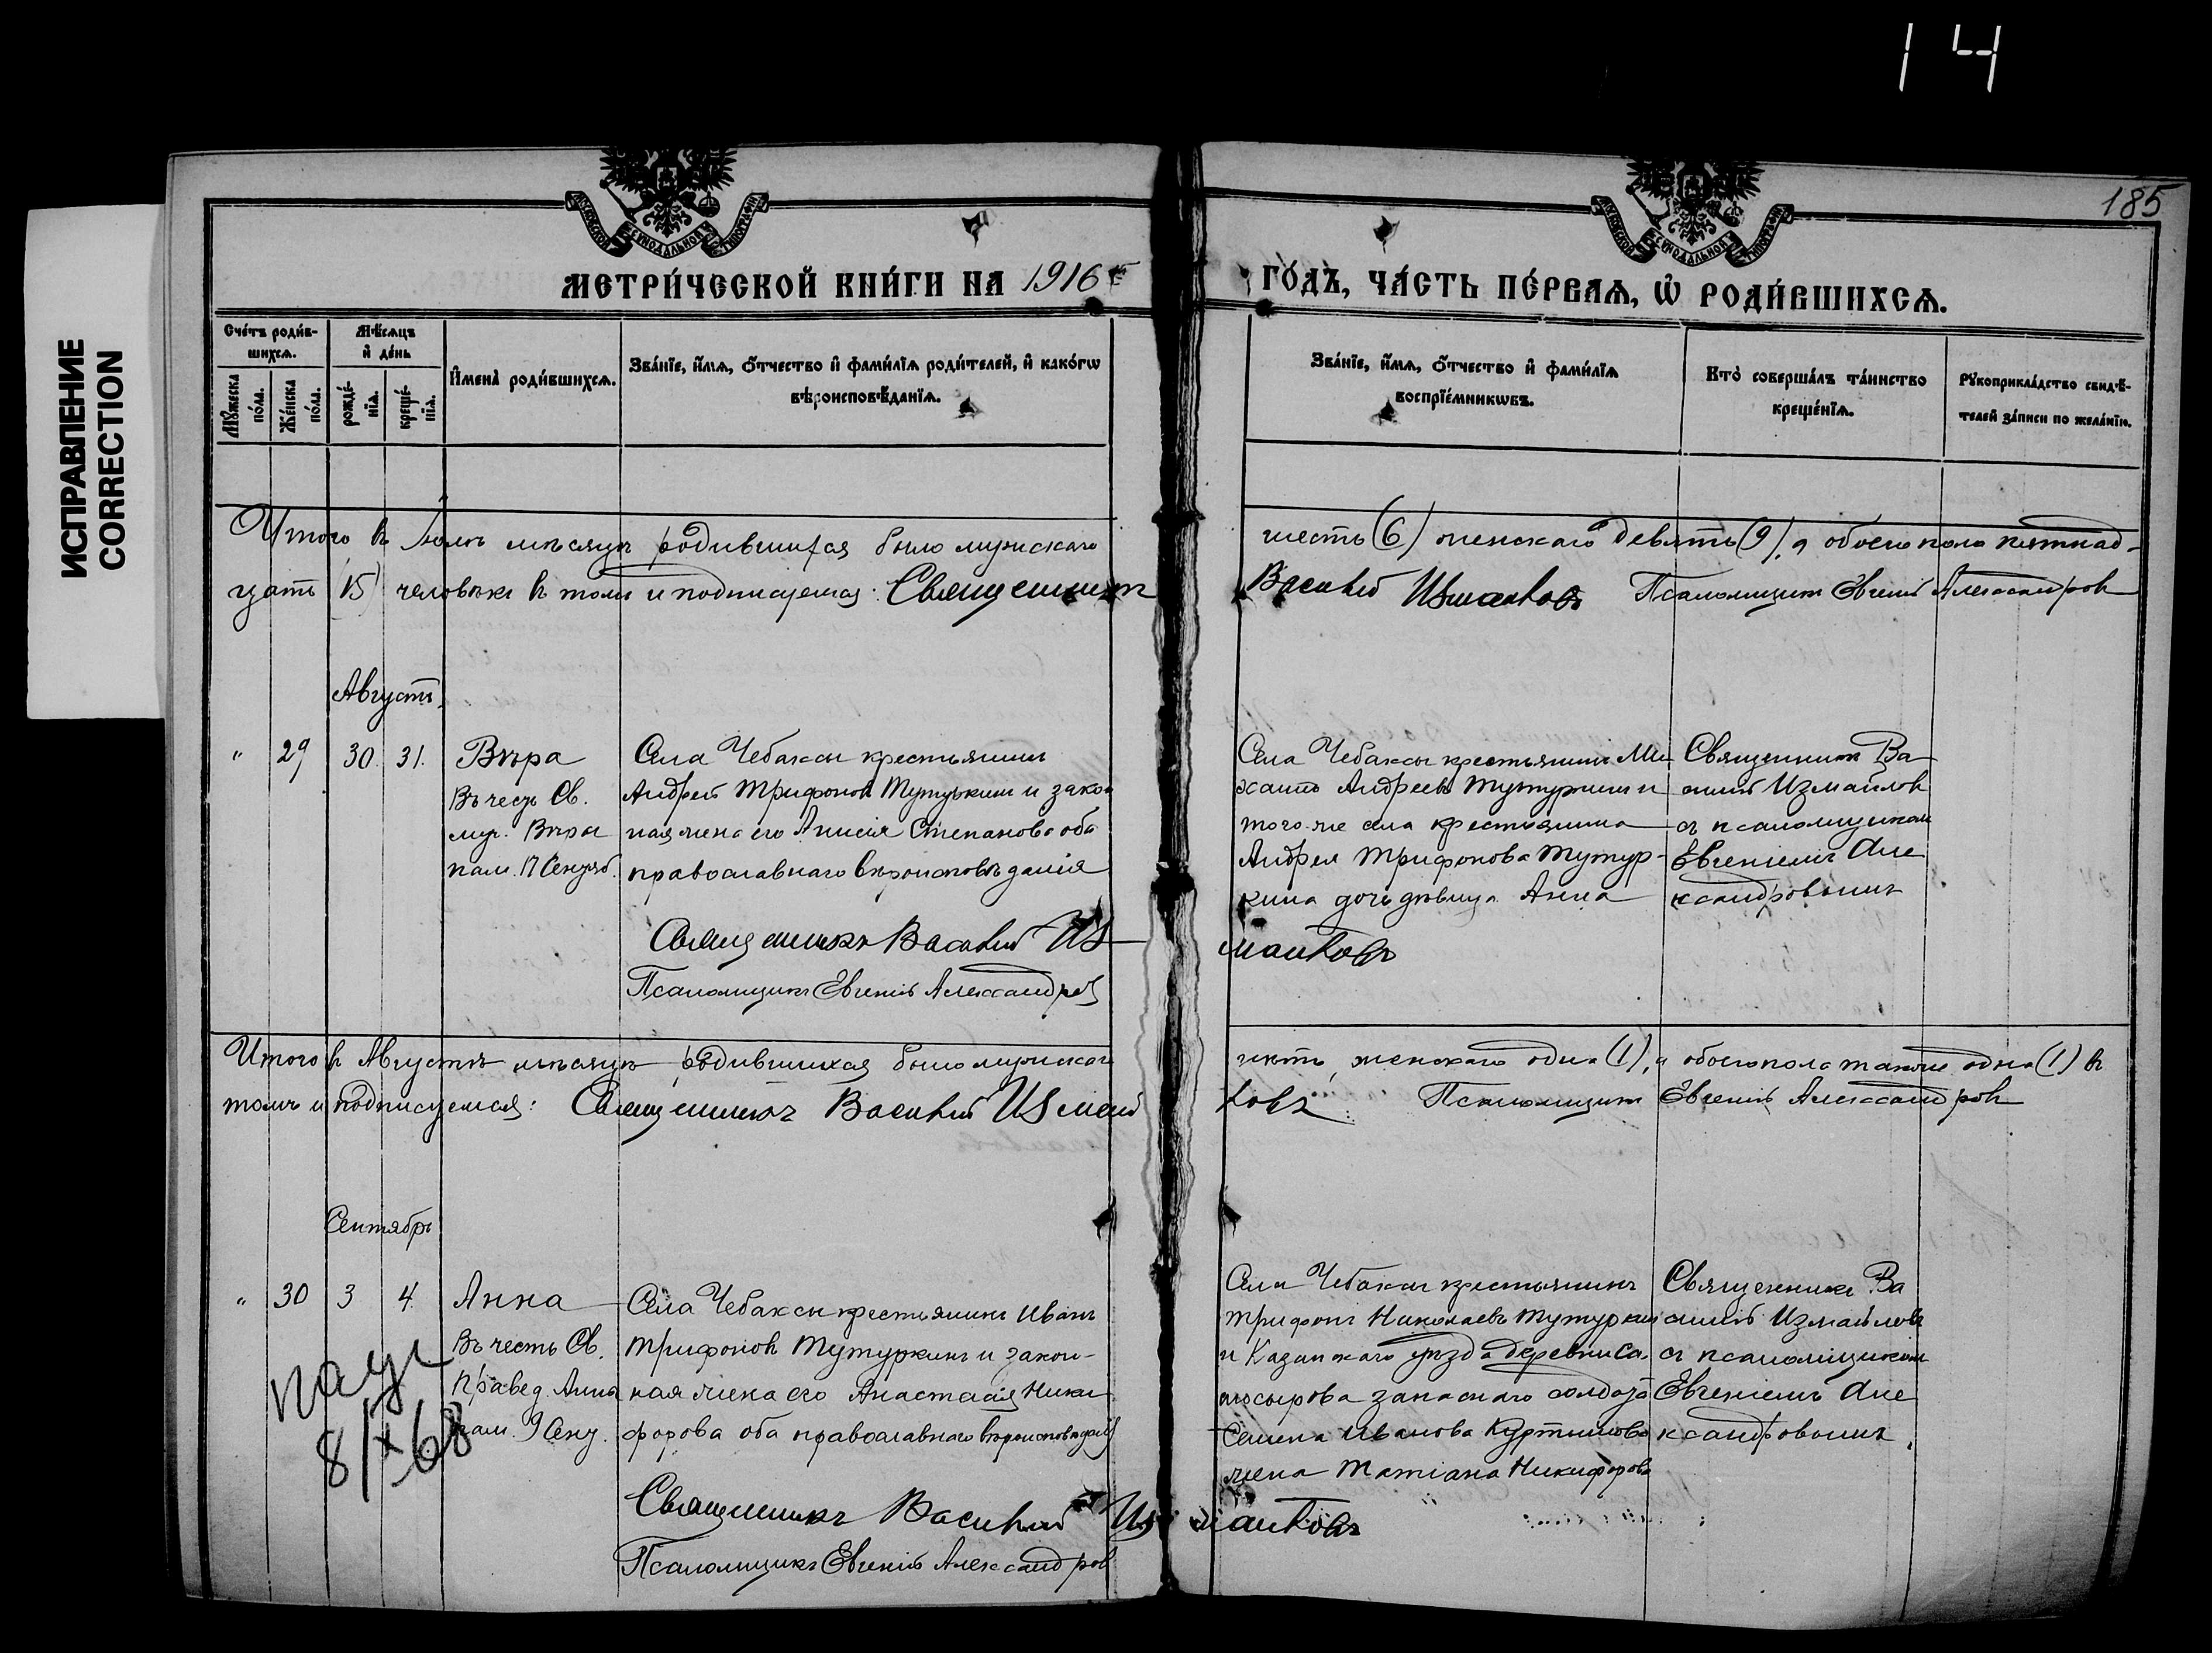 14
ИСПРАВЛЕНИЕ
CORRECTION
185
МЕТРИ́ЧЕСКОЙ КНИ́ГИ НА 1916 г.
ГО́ДЪ, ЧА́СТЬ ПЕ́РВАѦ, Ѡ҆ РОДИ́ВШИХСѦ.
Сче́тъ роди́в-
шихсѧ.
Мꙋ́жеска
по́ла.
Же́нска
по́ла.
Мѣ́сѧцъ
и҆ де́нь
рожде́-
нїѧ.
креще́-
нїѧ.
И҆мена̀ роди́вшихсѧ.
Зва́нїе, и҆́мѧ, ѻ҆́тчество и҆ фами́лїѧ роди́телей, и҆ како́гѡ
вѣроисповѣ́данїѧ.
Зва́нїе, и҆́мѧ, ѻ҆́тчество и҆ фами́лїѧ
воспрїе́мникѡвъ.
Кто̀ соверша́лъ та́инство
креще́нїѧ.
Рꙋкоприкла́дство свидѣ́-
телей за́писи по жела́нїю.
Итого въ Іюлѣ мѣсяцѣ родившихся было мужскаго
шесть (6) женскаго девять (9), а обоего пола пятнад-
цать (15) человѣкъ въ томъ и подписуемся: Священникъ
Василій Измайловъ Псаломщикъ Евгеній Александровъ
Августъ.
" 29 30. 31. Вѣра
Въ честь Св.
муч. Вѣры
пам. 17 Сентяб.
Села Чебаксы крестьянинъ
Андрей Трифоновъ Тутуркинъ и закон
ная жена его Анисія Степанова оба
православнаго вѣроисповѣданія
Села Чебаксы крестьянинъ Ми
хаилъ Андреевъ Тутуркинъ и
того-же села крестьянина
Андрея Трифонова Тутур-
кина дочь дѣвица Анна
Священникъ Ва
силій Измайловъ
съ псаломщикомъ
Евгеніемъ Але
ксандровымъ
Священникъ Василій Из
майловъ
Псаломщикъ Евгеній Александровъ
Итого въ Августѣ мѣсяцѣ родившихся было мужскаго
нѣтъ, женскаго одна (1), а обоего пола также одна (1) въ
томъ и подписуемся: Священникъ Василій Измай
ловъ Псаломщикъ Евгеній Александровъ
Сентябрь
" 30 3 4. Анна
Въ честь Св.
Правед. Анны
пам. 9 Сент.
8/IX 68
Села Чебаксы крестьянинъ Иванъ
Трифоновъ Тутуркинъ и закон-
ная жена его Анастасія Ники
форова оба православнаго вѣроисповѣданія
Села Чебаксы крестьянинъ
Трифонъ Николаевъ Тутуркинъ
и Казанскаго уѣзда деревни Са-
запаснаго солдата
Семена Иванова
жена Татіана Никифорова
Священникъ Ва
силій Измайловъ
съ псаломщикомъ
Евгеніемъ Але
ксандровымъ.
Священникъ Василій Из
майловъ
Псаломщикъ Евгеній Александровъ